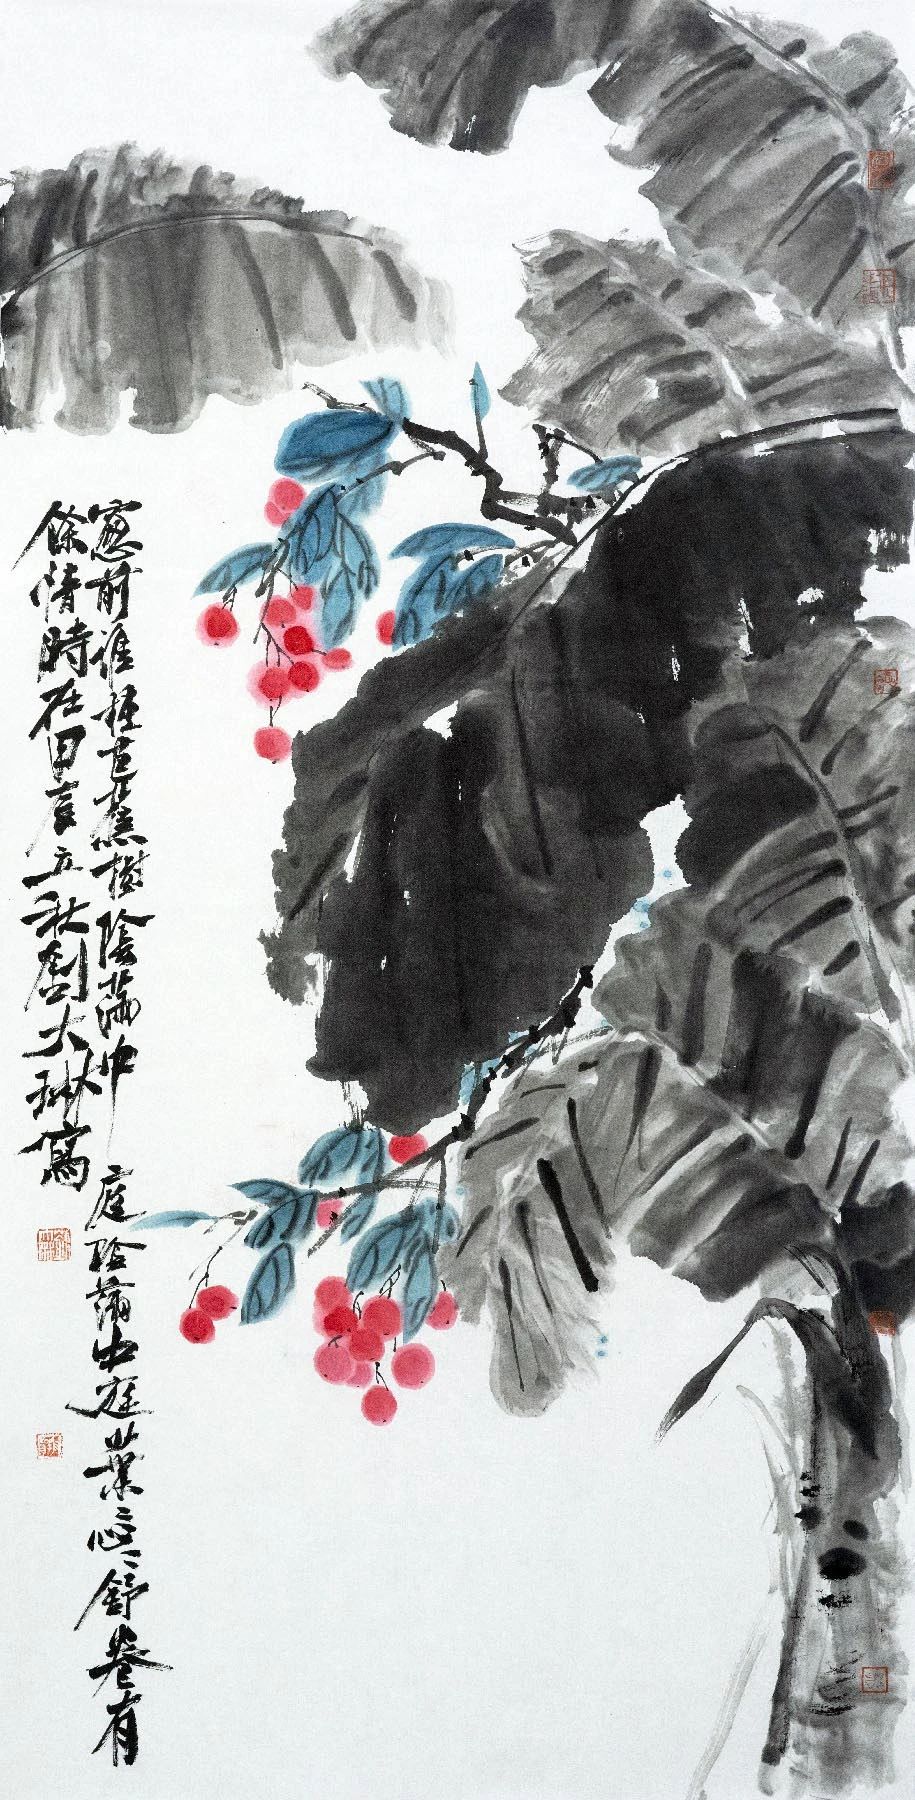 窻前誰種芭蕉樹陰滿中庭陰滿中庭葉心〻舒卷有
餘情時在甲辰立秋劉大琳寫